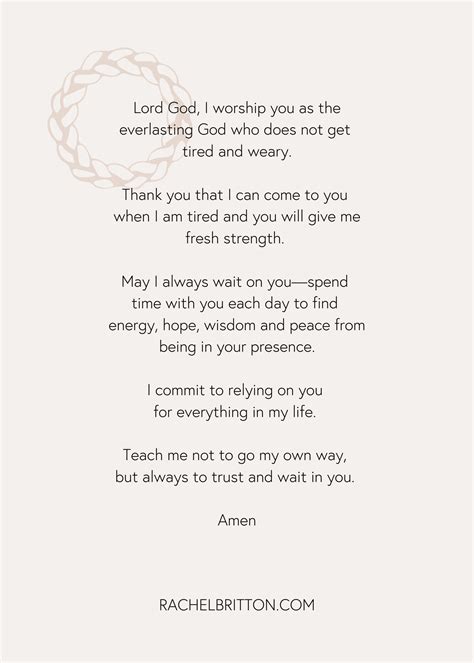 Lord God, I worship you as the
everlasting God who does not get
tired and weary.
Thank you that I can come to you
when I am tired and you will give me
fresh strength.
May I always wait on you—spend
time with you each day to find
energy, hope, wisdom and peace from
being in your presence.
I commit to relying on you
for everything in my life.
Teach me not to go my own way,
but always to trust and wait in you.
Amen
RACHELBRITTON.COM